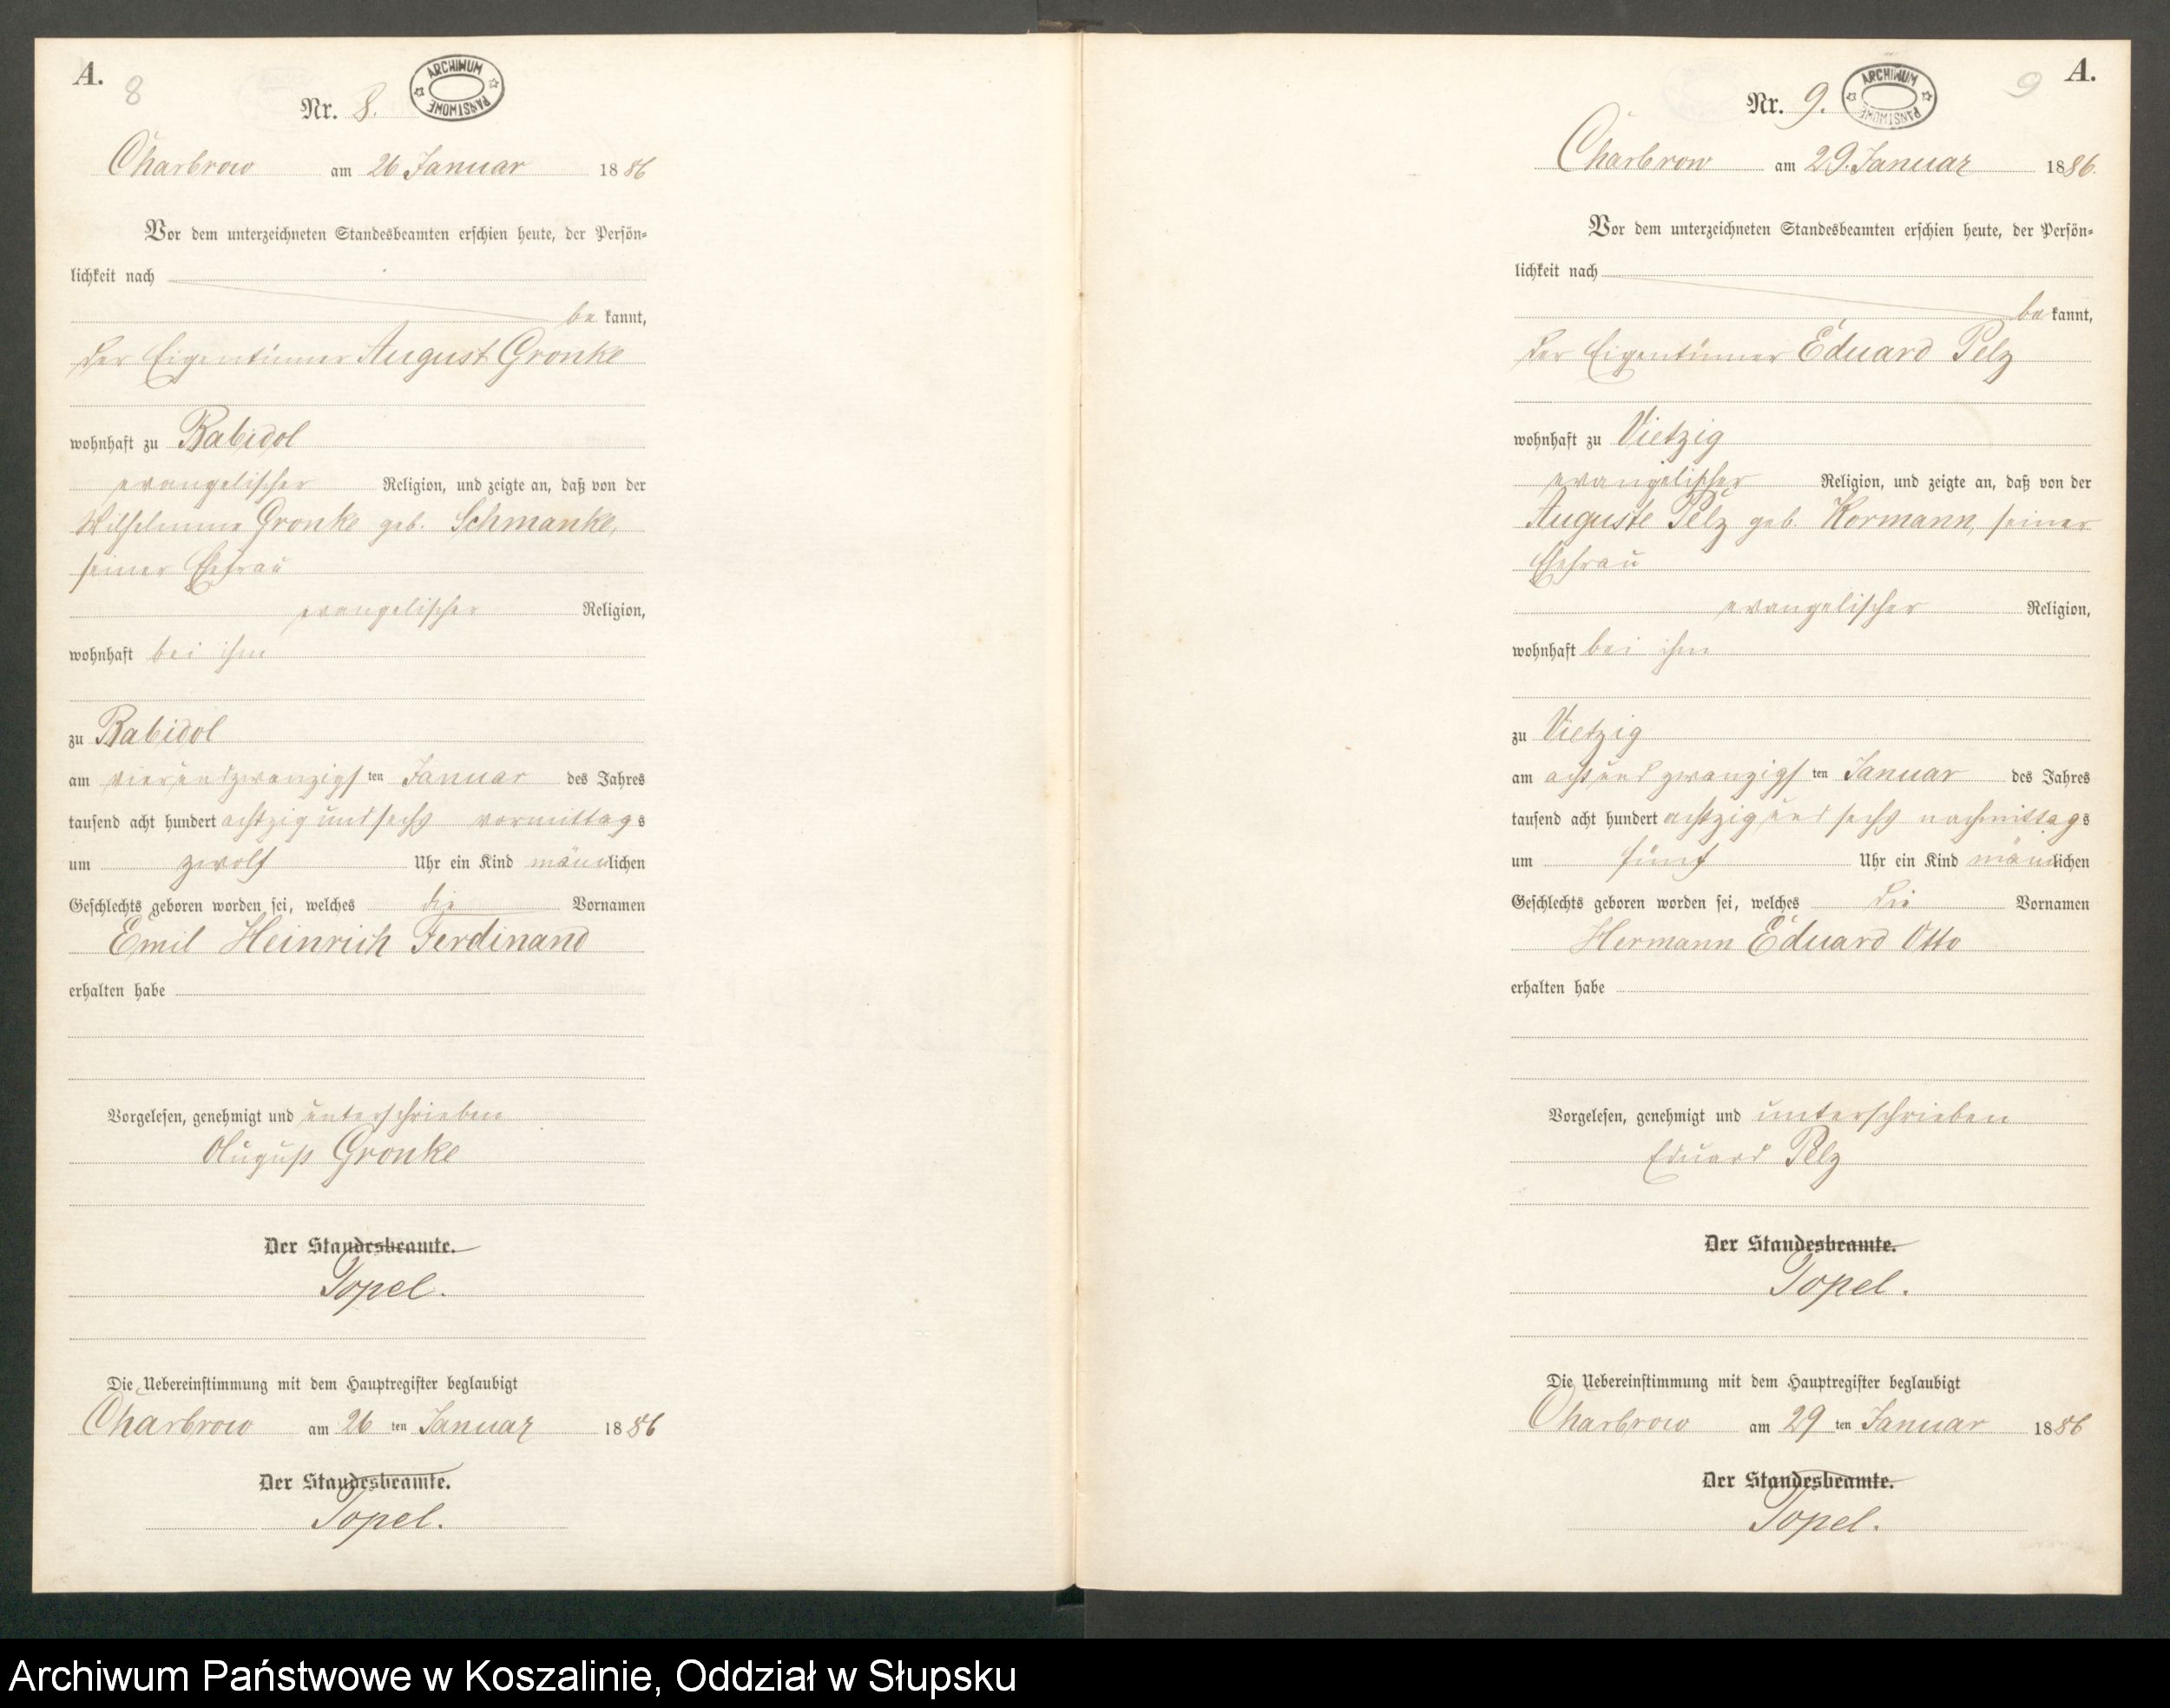 A.
8
Nr. 8.
ARCHIWUM PAŃSTWOWE
Charbrow am 26 Januar 1886
Vor dem unterzeichneten Standesbeamten erschien heute, der Persön-
lichkeit nach
be kannt,
der Eigentümer August Gronke
wohnhaft zu Babidol
evangelischer Religion, und zeigte an, daß von der
Wilhelmine Gronke geb. Schmanke,
seiner Ehefrau
evangelischer Religion,
wohnhaft bei ihm
zu Babidol
am vierundzwanzigsten Januar des Jahres
tausend acht hundert achtzig und sechs vormittags
um zwölf Uhr ein Kind männlichen
Geschlechts geboren worden sei, welches die Vornamen
Emil Heinrich Ferdinand
erhalten habe
Vorgelesen, genehmigt und unterschrieben
August Gronke
Der Standesbeamte.
Topel.
Die Uebereinstimmung mit dem Hauptregister beglaubigt
Charbrow am 26 ten Januar 1886
Der Standesbeamte.
Topel.
A.
9
Nr. 9.
ARCHIWUM PAŃSTWOWE
Charbrow am 29. Januar 1886.
Vor dem unterzeichneten Standesbeamten erschien heute, der Persön-
lichkeit nach
be kannt,
der Eigentümer Eduard Pelz
wohnhaft zu Vietzig
evangelischer Religion, und zeigte an, daß von der
Auguste Pelz geb. Kormann, seiner
Ehefrau
evangelischer Religion,
wohnhaft bei ihm
zu Vietzig
am achtundzwanzigsten Januar des Jahres
tausend acht hundert achtzig und sechs nachmittags
um fünf Uhr ein Kind männlichen
Geschlechts geboren worden sei, welches die Vornamen
Hermann Eduard Otto
erhalten habe
Vorgelesen, genehmigt und unterschrieben
Eduard Pelz
Der Standesbeamte.
Topel.
Die Uebereinstimmung mit dem Hauptregister beglaubigt
Charbrow am 29 ten Januar 1886
Der Standesbeamte.
Topel.
Archiwum Państwowe w Koszalinie, Oddział w Słupsku